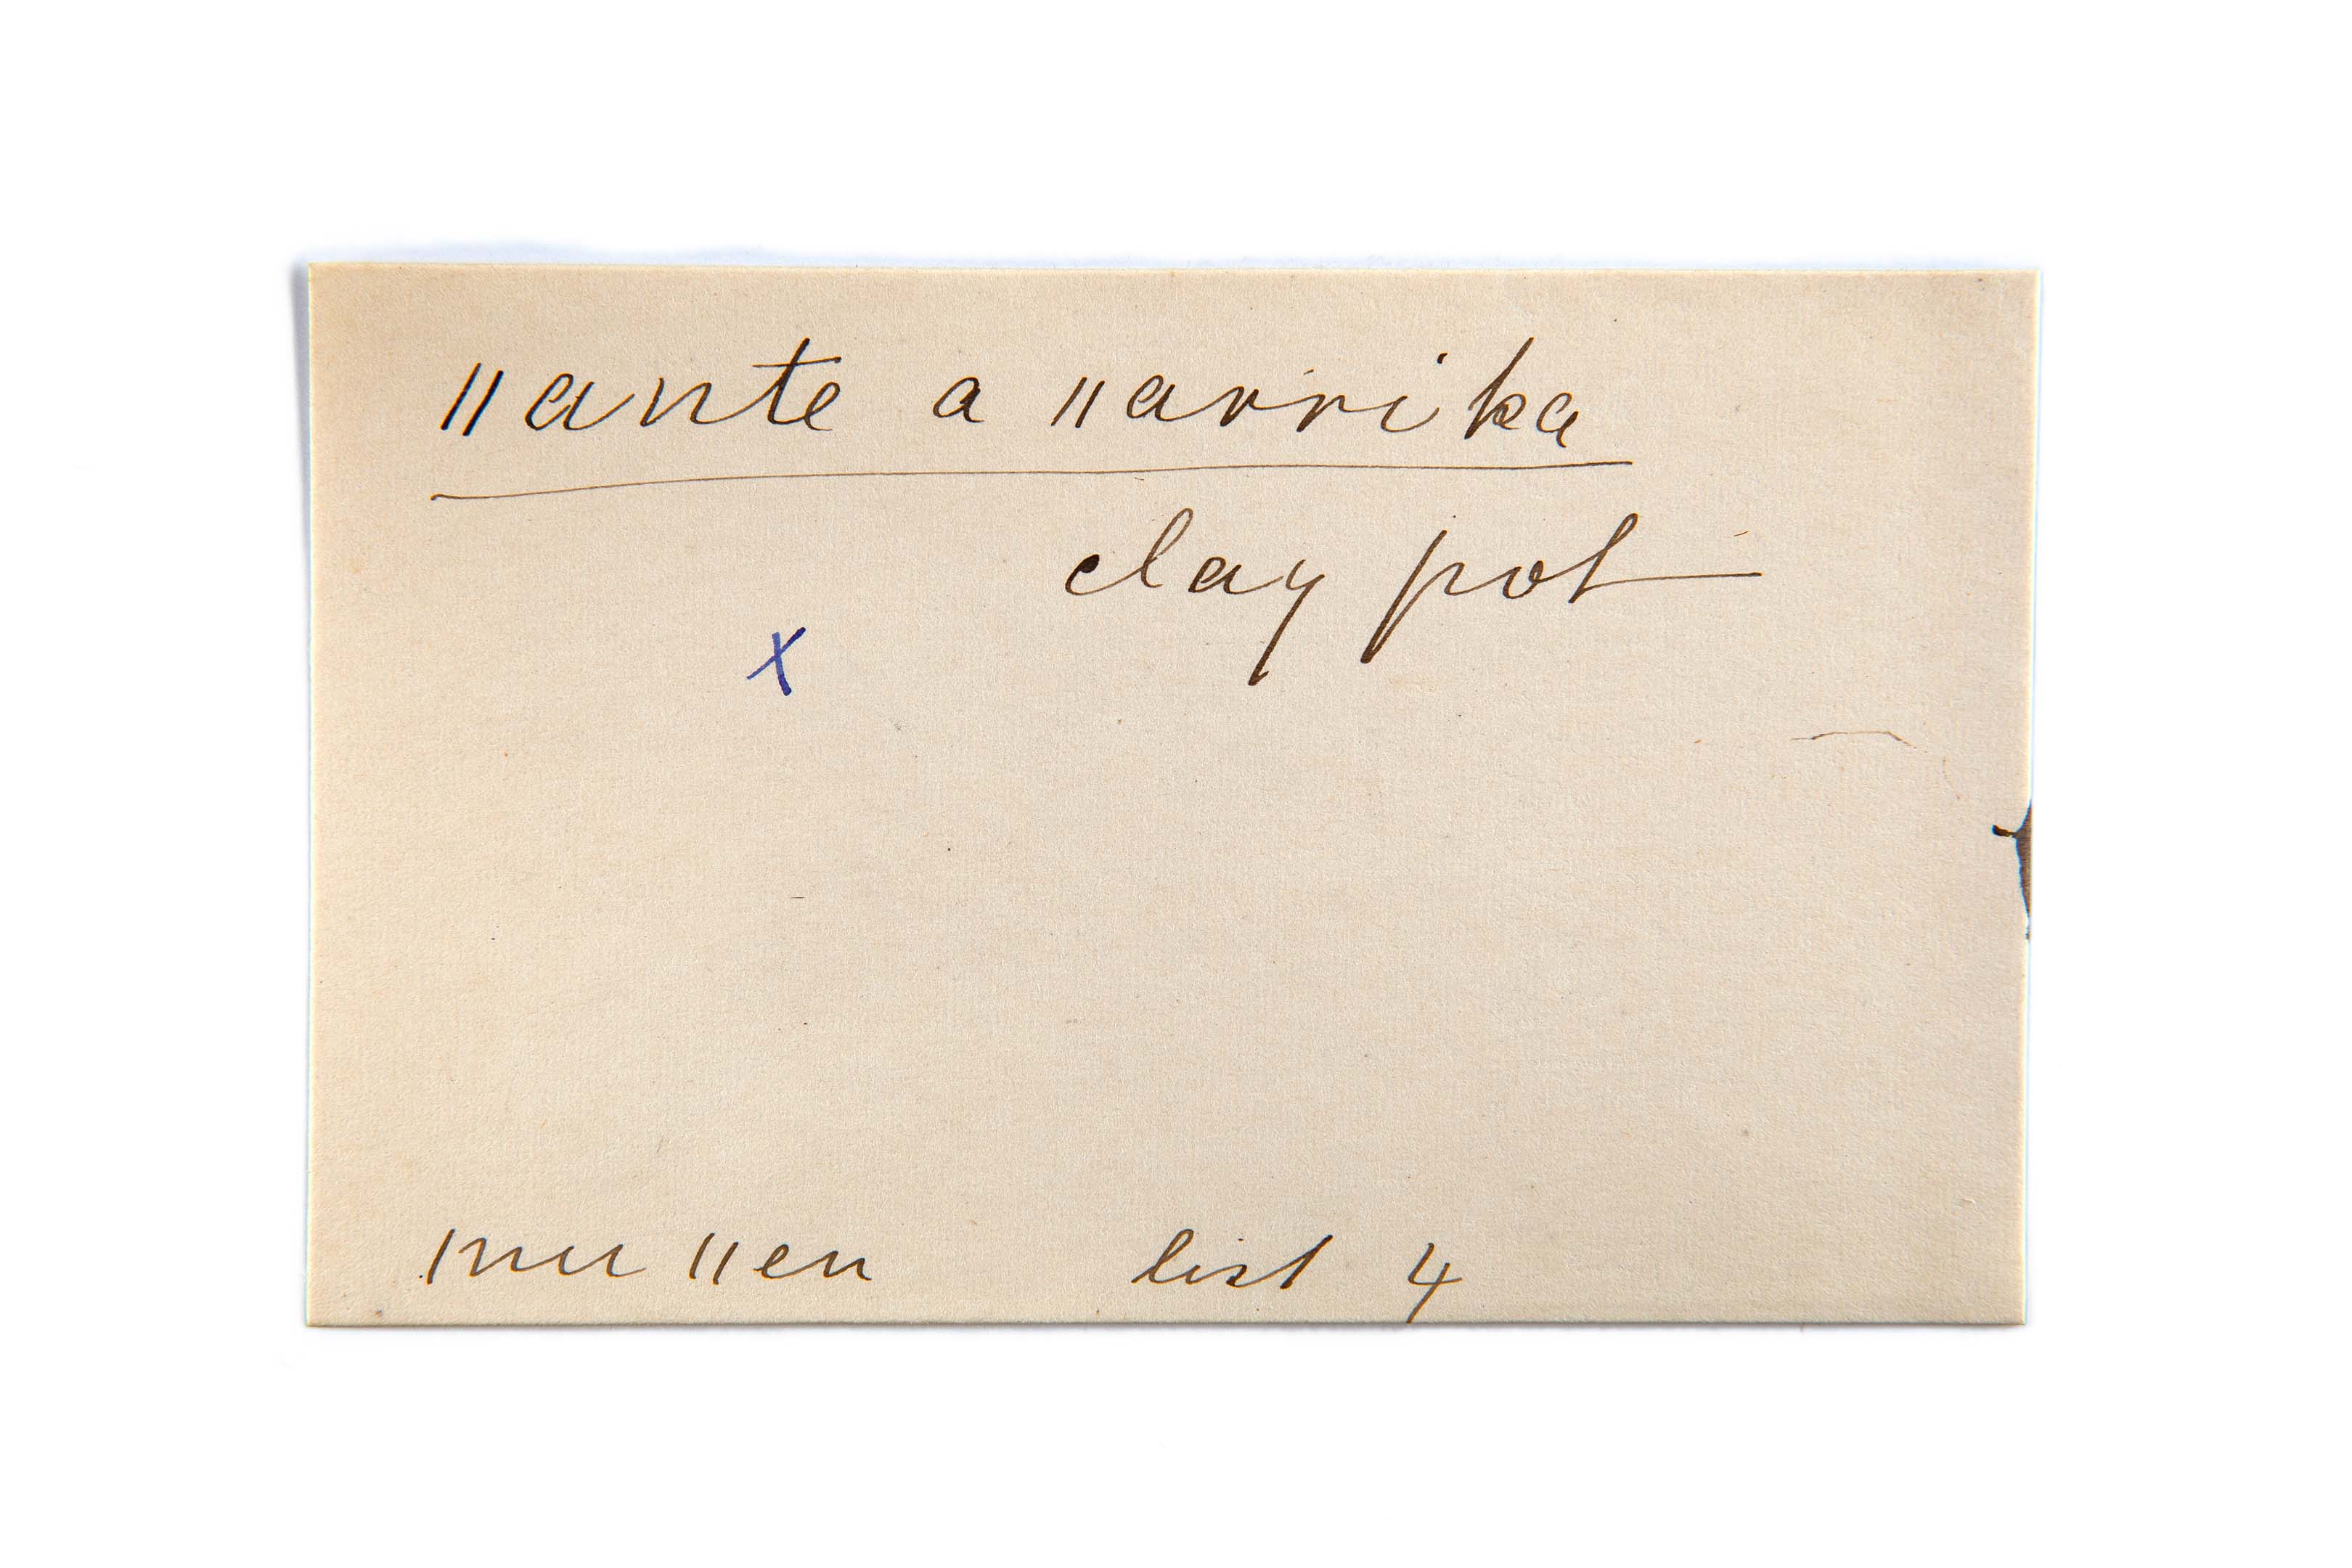 ǁante a ǁarrika
clay pot
x
ǀnu ǁen list 4